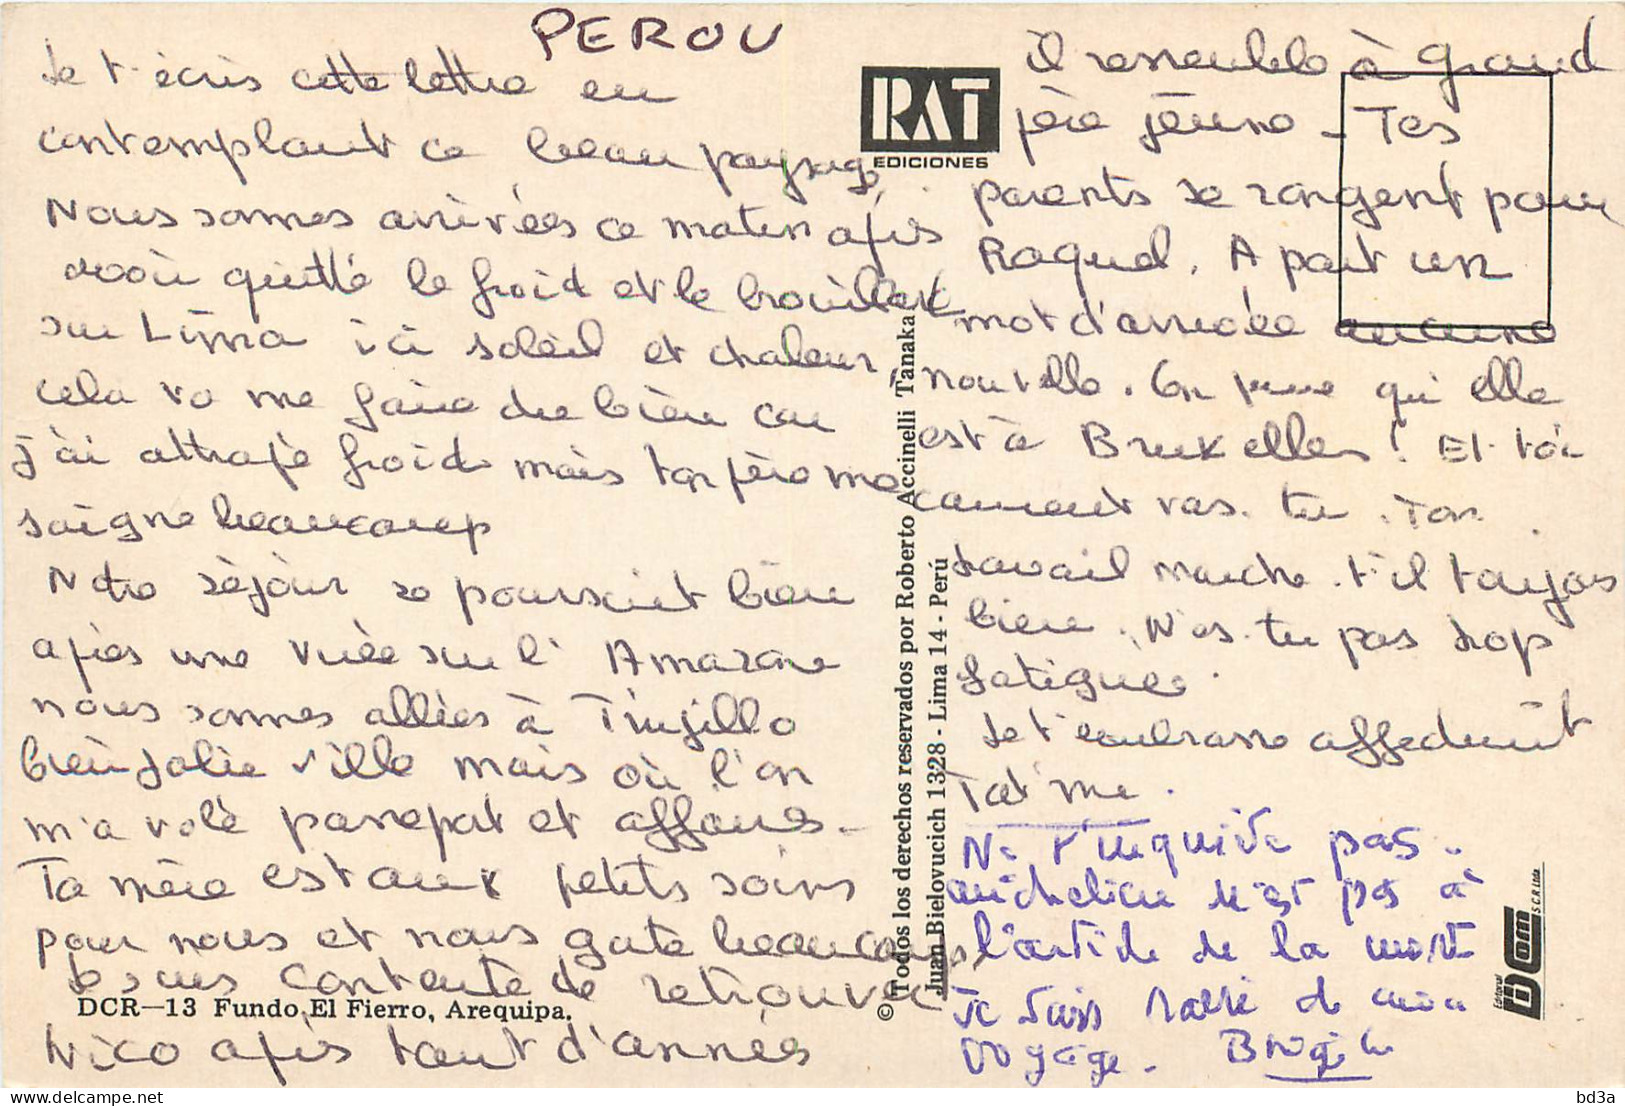 PEROU
Je t'écris cette lettre en
contemplant ce beau paysage
Nous sommes arrivées ce matin après
avoir quitté le froid et le brouillard
sur Lima ici soleil et chaleur.
cela va me faire du bien car
j'ai attrapé froid mais ton père me
soigne beaucoup
Notre séjour se poursuit bien
après une virée sur l'Amazone
nous sommes allées à Trujillo
bien jolie ville mais où l'on
m'a volé passeport et affaires.
Ta mère est aux petits soins
pour nous et nous gate beaucoup
Je suis contente de retrouver
DCR—13 Fundo El Fierro, Arequipa.
Nico après tant d'annés
RAT
EDICIONES
© Todos los derechos reservados por Roberto Accinelli Tanaka
Juan Bielovucich 1328 - Lima 14 - Perú
il ressemble à Grand
père jeune - Tes
parents se rangent pour
Raquel. A part un
mot d'arrivée aucune
nouvelle. On pense qu'elle
est à Bruxelles! Et toi
comment vas-tu. Ton
travail marche-t-il toujours
bien. N'es-tu pas trop
fatiguée.
Je t'embrasse affectueusement
Ne t'inquiète pas.
n'est pas à
l'article de la mort
Je suis ravie de mon
voyage. Brigitte
Editorial DCom S.C.R. Ltda